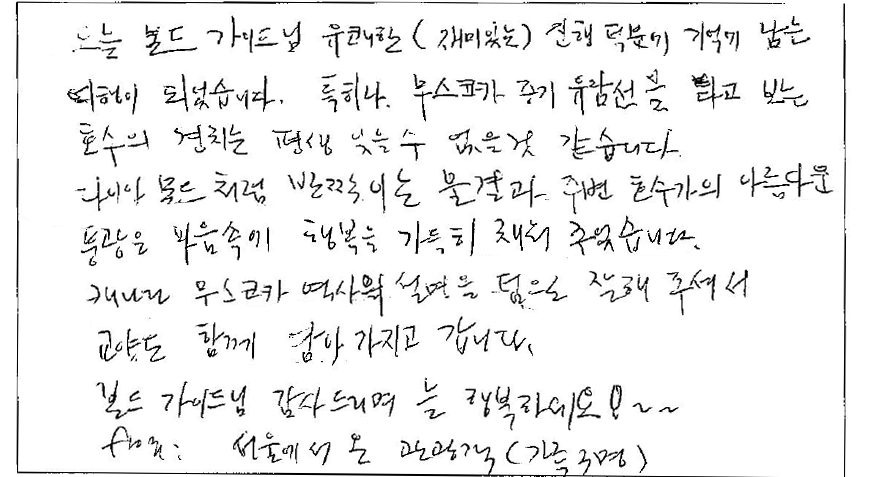 오늘 볼드 가이드님 유쾌한(재미있는) 진행 덕분에 기억에 남는
여행이 되었습니다. 특히나, 무스코카 증기 유람선을 타고 보는
호수의 경치는 평생 잊을 수 없을 것 같습니다.
다이아몬드처럼 반짝이는 물결과 주변 호수가의 아름다운
풍광은 마음속에 행복을 가득히 채워 주었습니다.
캐나다 무스코카 역사와 설명을 덤으로 잘해 주셔서
교양도 함께 담아 가지고 갑니다.
볼드 가이드님 감사드리며 늘 행복하세요!~~
from: 서울에서 온 관광객(가족 3명)